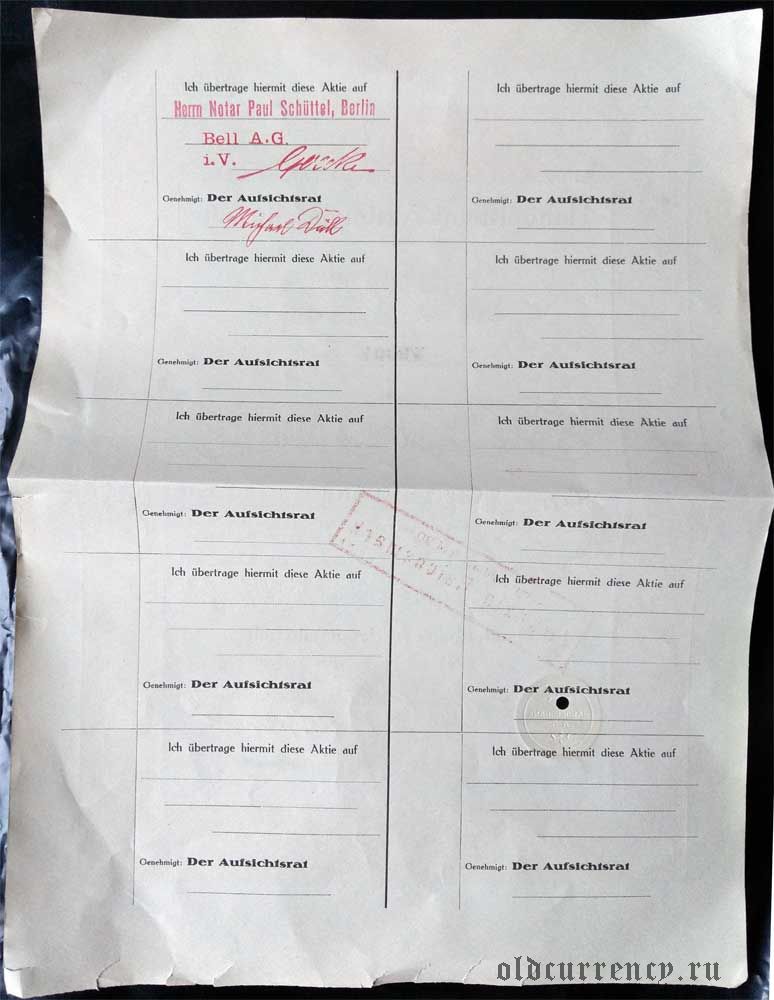 Ich übertrage hiermit diese Aktie auf
Herrn Notar Paul Schüttel, Berlin
Bell A.G.
i.V.
Genehmigt: Der Aufsichtsrat
Michael
Ich übertrage hiermit diese Aktie auf
Genehmigt: Der Aufsichtsrat
Ich übertrage hiermit diese Aktie auf
Genehmigt: Der Aufsichtsrat
Ich übertrage hiermit diese Aktie auf
Genehmigt: Der Aufsichtsrat
Ich übertrage hiermit diese Aktie auf
Genehmigt: Der Aufsichtsrat
Ich übertrage hiermit diese Aktie auf
Genehmigt: Der Aufsichtsrat
Ich übertrage hiermit diese Aktie auf
Genehmigt: Der Aufsichtsrat
Ich übertrage hiermit diese Aktie auf
Genehmigt: Der Aufsichtsrat
Ich übertrage hiermit diese Aktie auf
Genehmigt: Der Aufsichtsrat
Ich übertrage hiermit diese Aktie auf
Genehmigt: Der Aufsichtsrat
oldcurrency.ru